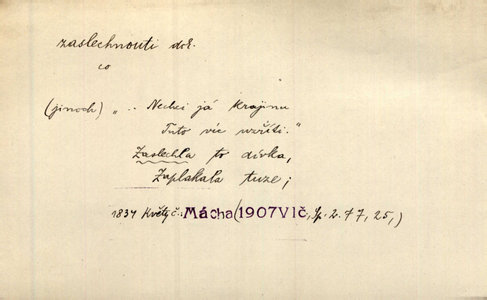 zaslechnouti dok.
co
(jinoch) „ .. Nechci já krajinu
Tuto víc uzříti."
Zaslechla to dívka,
Zaplakala tuze;
1834 Květy č. Mácha (1907Vlč, Sp. 2. 77, 25,)